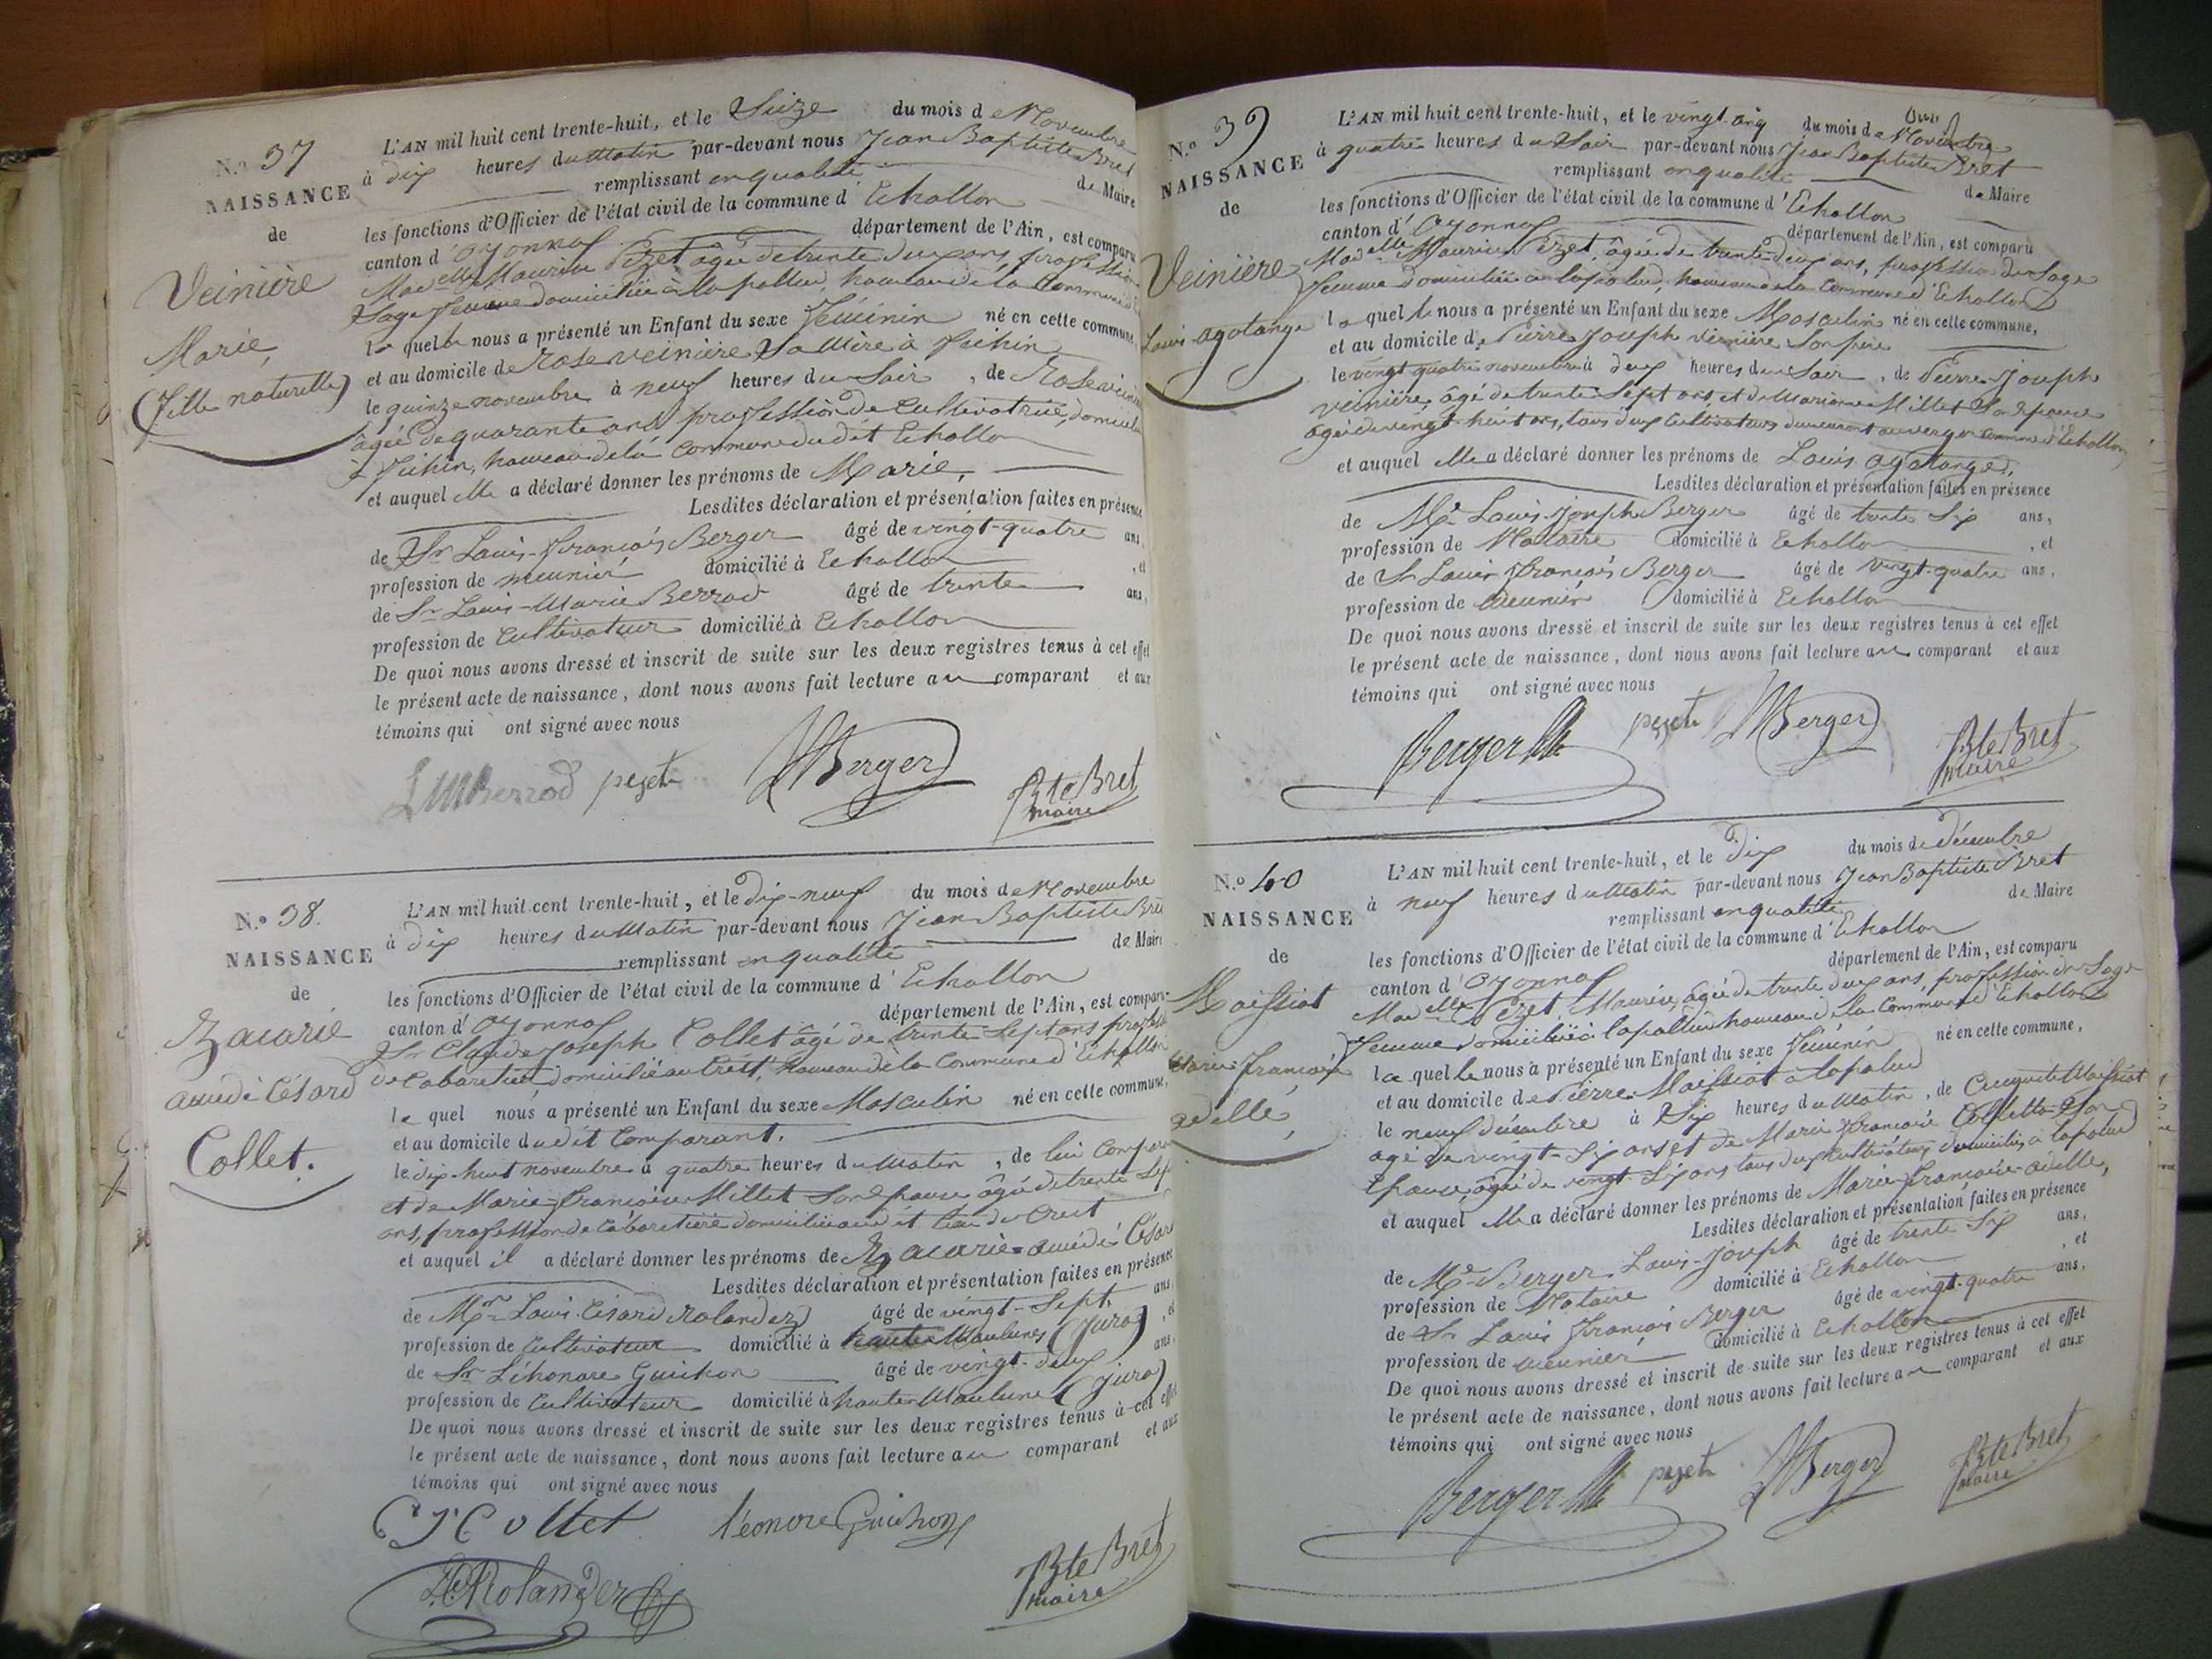 N.o 37
NAISSANCE
de
Veinière
Marie,
(fille naturelle)
L'AN mil huit cent trente-huit, et le Seize du mois de Novembre
à dix heures du Matin par-devant nous Jean Baptiste Bret
remplissant en qualité de Maire
les fonctions d'Officier de l'état civil de la commune d'Echallon
canton d'Oyonnax département de l'Ain, est comparu
Madelle Maurise Pezet âgée de trente deux ans, profession
Sage femme domiciliée à lapallud, hameau de la Commune
laquelle nous a présenté un Enfant du sexe féminin né en cette commune,
et au domicile de Rose Veinière Sa Mère à
le quinze novembre à neuf heures du Soir, de Rose
âgée de quarante ans profession de Cultivatrice,
hameau de la Commune dudit Echallon
et auquel elle a déclaré donner les prénoms de Marie,
Lesdites déclaration et présentation faites en présence
de Sr Louis-françois Berger âgé de vingt-quatre ans,
profession de meunier domicilié à Echallon, et
de Sr Louis-Marie Berrod âgé de trente ans,
profession de Cultivateur domicilié à Echallon
De quoi nous avons dressé et inscrit de suite sur les deux registres tenus à cet effet
le présent acte de naissance, dont nous avons fait lecture au comparant et aux
témoins qui ont signé avec nous
LM Berrod pezet Berger Bte Bret
maire
N.o 38.
NAISSANCE
de
Zacarie
amedé Césard
Collet.
L'AN mil huit cent trente-huit, et le dix-neuf du mois de Novembre
à dix heures du Matin par-devant nous Jean Baptiste Bret
remplissant en qualité de Maire
les fonctions d'Officier de l'état civil de la commune d'Echallon
canton d'Oyonnax département de l'Ain, est comparu
Sr Claude Joseph Collet âgé de trente-Sept ans
de Cabaretier domicilié au Crêt, hameau de la Commune d'Echallon
lequel nous a présenté un Enfant du sexe Masculin né en cette commune,
et au domicile dudit Comparant.
le dix-huit novembre à quatre heures du Matin, de lui
et de Marie-françoise Millet Son Epouse âgée de trente
ans, profession de Cabaretière
et auquel il a déclaré donner les prénoms de Zacarie-amédé
Lesdites déclaration et présentation faites en présence
de Mr Louis Césard Rolandez âgé de vingt-Sept ans,
profession de Cultivateur domicilié à (Jura), et
de Sr Léhonore Guichon âgé de vingt-deux ans,
profession de Cultivateur domicilié à (Jura)
De quoi nous avons dressé et inscrit de suite sur les deux registres tenus à cet effet
le présent acte de naissance, dont nous avons fait lecture au comparant et aux
témoins qui ont signé avec nous
CJ Collet léonore Guichon
Rolandez Bte Bret
maire
N.o 39
NAISSANCE
de
Veinière
Louis-agatange
L'AN mil huit cent trente-huit, et le vingt cinq du mois de Novembre
à quatre heures du Soir par-devant nous Jean Baptiste Bret
remplissant en qualité de Maire
les fonctions d'Officier de l'état civil de la commune d'Echallon
canton d'Oyonnax département de l'Ain, est comparu
Madelle Maurise Pezet, âgée de trente-deux ans, profession de Sage
femme domiciliée à hameau de la Commune d'Echallon
laquelle nous a présenté un Enfant du sexe Masculin né en cette commune,
et au domicile de Pierre Joseph Veinière Son père
le vingt quatre novembre à deux heures du Soir, de Pierre-Joseph
Veinière, âgé de trente-Sept ans et de Marianne Millet Son Epouse
âgée de vingt-huit ans, tous deux Cultivateurs demeurant commune d'Echallon
et auquel elle a déclaré donner les prénoms de Louis agatange,
Lesdites déclaration et présentation faites en présence
de Me Louis-Joseph Berger âgé de trente Six ans,
profession de Notaire domicilié à Echallon, et
de Sr Louis françois Berger âgé de vingt-quatre ans,
profession de Meunier domicilié à Echallon
De quoi nous avons dressé et inscrit de suite sur les deux registres tenus à cet effet
le présent acte de naissance, dont nous avons fait lecture au comparant et aux
témoins qui ont signé avec nous
Berger pezet Berger Bte Bret
maire
N.o 40
NAISSANCE
de
Maissiat
Marie-françoise
adelle,
L'AN mil huit cent trente-huit, et le dix du mois de décembre
à neuf heures du Matin par-devant nous Jean Baptiste Bret
remplissant en qualité de Maire
les fonctions d'Officier de l'état civil de la commune d'Echallon
canton d'Oyonnax département de l'Ain, est comparu
Madelle Pezet, Maurise, âgée de trente deux ans, profession de Sage
femme domiciliée à lapallud hameau de la Commune d'Echallon
laquelle nous a présenté un Enfant du sexe féminin né en cette commune,
et au domicile de Pierre Maissiat à lapalud
le neuf décembre à Six heures du Matin, de Maissiat
âgé de vingt-Six ans et de Marie françoise Son
Epouse, âgée de vingt-Six ans tous deux Cultivateurs, domiciliés à lapalud
et auquel elle a déclaré donner les prénoms de Marie-françoise-adelle,
Lesdites déclaration et présentation faites en présence
de Me Berger Louis-Joseph âgé de trente Six ans,
profession de Notaire domicilié à Echallon, et
de Sr Louis françois Berger âgé de vingt-quatre ans,
profession de Meunier domicilié à Echallon
De quoi nous avons dressé et inscrit de suite sur les deux registres tenus à cet effet
le présent acte de naissance, dont nous avons fait lecture au comparant et aux
témoins qui ont signé avec nous
Berger pezet Berger Bte Bret
maire